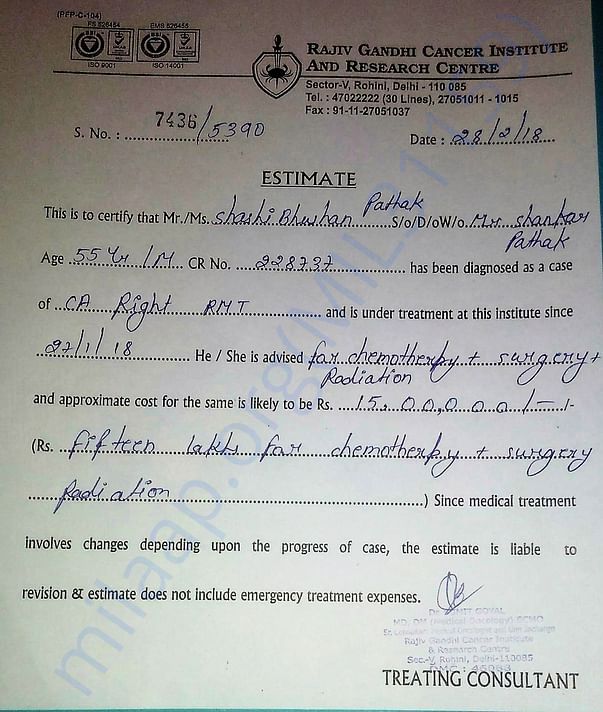 (PFP-C-104)
FS 526454 EMS 526455
ISO 9001 ISO 14001
RAJIV GANDHI CANCER INSTITUTE
AND RESEARCH CENTRE
Sector-V, Rohini, Delhi - 110 085
Tel. : 47022222 (30 Lines), 27051011 - 1015
Fax : 91-11-27051037
S. No. : 7436/5390
Date : 28/2/18
ESTIMATE
This is to certify that Mr./Ms. Shashi Bhushan Pathak S/o/D/oW/o. Mr Shankar
Pathak
Age 55 Yr/M CR No. 228737 has been diagnosed as a case
of CA Right RMT and is under treatment at this institute since
27/1/18 He / She is advised for chemotherpy + surgery +
Radiation
and approximate cost for the same is likely to be Rs. 15,00,000/- /-
(Rs. Fifteen lakhs for chemotherpy + surgery
Radiation ) Since medical treatment
involves changes depending upon the progress of case, the estimate is liable to
revision & estimate does not include emergency treatment expenses.
GOYAL
MD, DM (Medical Oncology)
Rajiv Gandhi Cancer Institute
& Research Centre
Sec.-V, Rohini, Delhi-110085
TREATING CONSULTANT